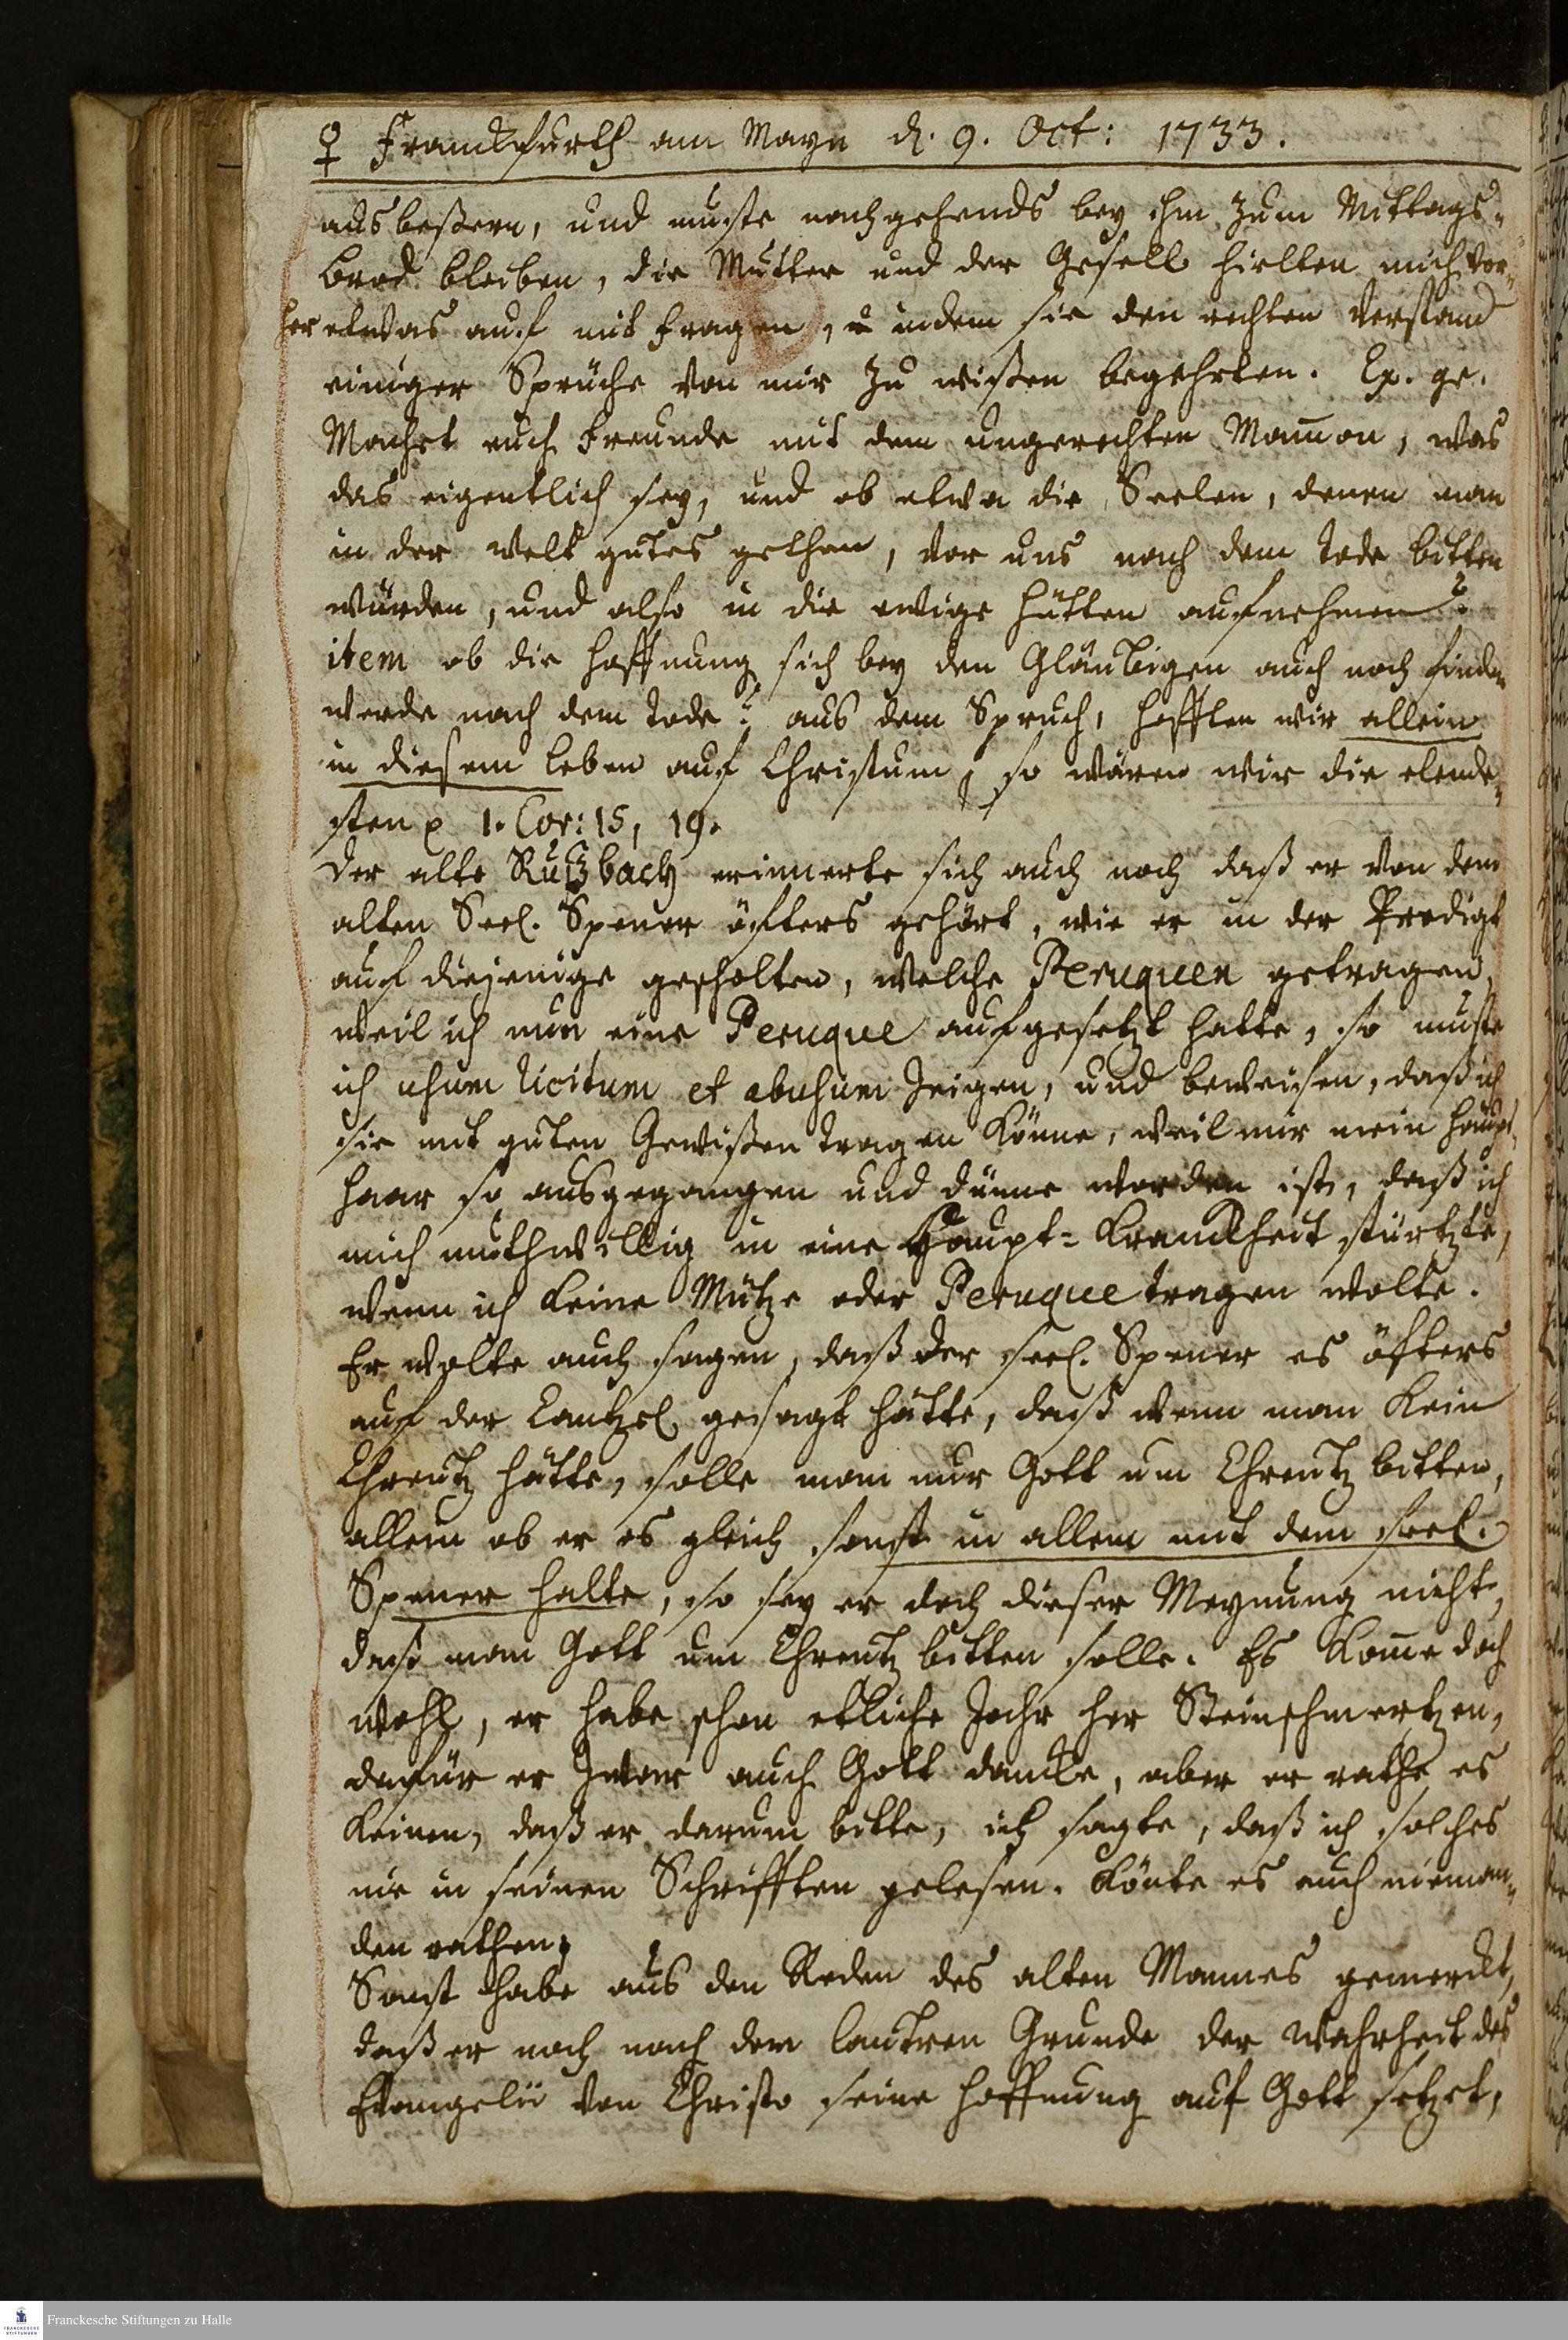 ♀ Franckfurth am Mayn d. 9. Oct: 1733.
ausbeßern, und muste nachgehends bey ihm zum Mittags-
brod bleiben, die Mutter und der Gesell hielten mich vor-
her etwas auf mit fragen, u indem sie den rechten Verstand
einiger Sprüche von mir zu wißen begehrten. Ex. gr.
Machet euch Freunde mit dem ungerechten Mam̅on, was
das eigentlich sey, und ob etwa die Seelen, denen man
in der Welt gutes gethan, vor uns nach dem Tode bitten
würden, und also in die ewige Hütten aufnehmen?
item ob die Hoffnung sich bey den Gläubigen auch noch finden
werde nach dem Tode? aus dem Spruch, hofften wir allein
in diesem Leben auf Christum, so wären wir die elende-
sten p 1. Cor: 15, 19.
Der alte Rutzbach erinnerte sich auch noch daß er von dem
alten Seel. Spener öfters gehört, wie er in der Predigt
auf diejenige gescholten, welche Peruquen getragen,
weil ich nun eine Peruque aufgesetzt hatte, so muste
ich usum licitum et abusum zeigen, und beweisen, daß ich
sie mit guten Gewißen tragen könne, weil mir mein Haupt-
Haar so ausgegangen und dünne worden ist, daß ich
mich muthwillig in eine Haupt-Kranckheit stürtzte,
wenn ich keine Mütze oder Peruque tragen wolte.
Er wolte auch sagen, daß der seel. Spener es öfters
auf der Cantzel gesagt hätte, daß wenn man kein
Chreutz hätte, solle man nur Gott um Chreutz bitten,
allein ob er es gleich sonst in allem mit dem seel.
Spener halte, so sey er doch dieser Meynung nicht,
daß man Gott um Chreutz bitten solle. Es kom̅e doch
wohl, er habe schon etliche Jahr her Steinschmertzen,
dafür er zwar auch Gott dancke, aber er rathe es
keinen, daß er darum bitte, ich sagte, daß ich solches
nie in seinen Schrifften gelesen. Könte es auch nieman-
den rathen;
Sonst habe aus den Reden des alten Mannes gemerckt,
daß er noch nach dem lautren Grunde der Wahrheit des
Evangelii von Christo seine Hoffnung auf Gott setzet,
Franckesche Stiftungen zu Halle
FRANCKESCHE
STIFTUNGEN